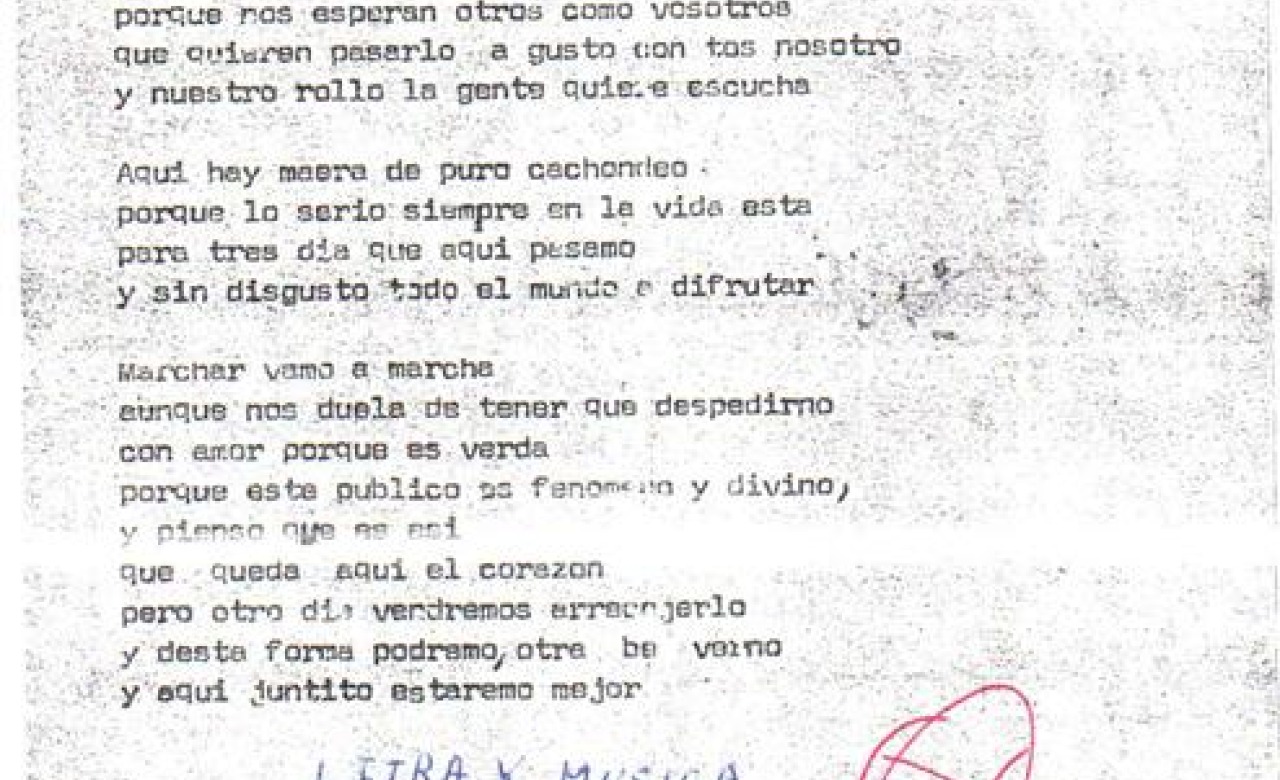 porque nos esperan otros como vosotros
que quieren pasarlo a gusto con tos nosotro
y nuestro rollo la gente quiere escucha
Aqui hay maera de puro cachondeo
porque lo serio siempre en la vida esta
para tres dia que aqui pasamo
y sin disgusto todo el mundo a difrutar
Marchar vamo a marcha
aunque nos duela de tener que despedirno
con amor porque es verda
porque este publico es fenomeno y divino,
y pienso que es asi
que queda aqui el corazon
pero otro dia vendremos a jerlo
y desta forma podremo, otra be veino
y aqui juntito estaremo mejor
LETRA Y MUSICA